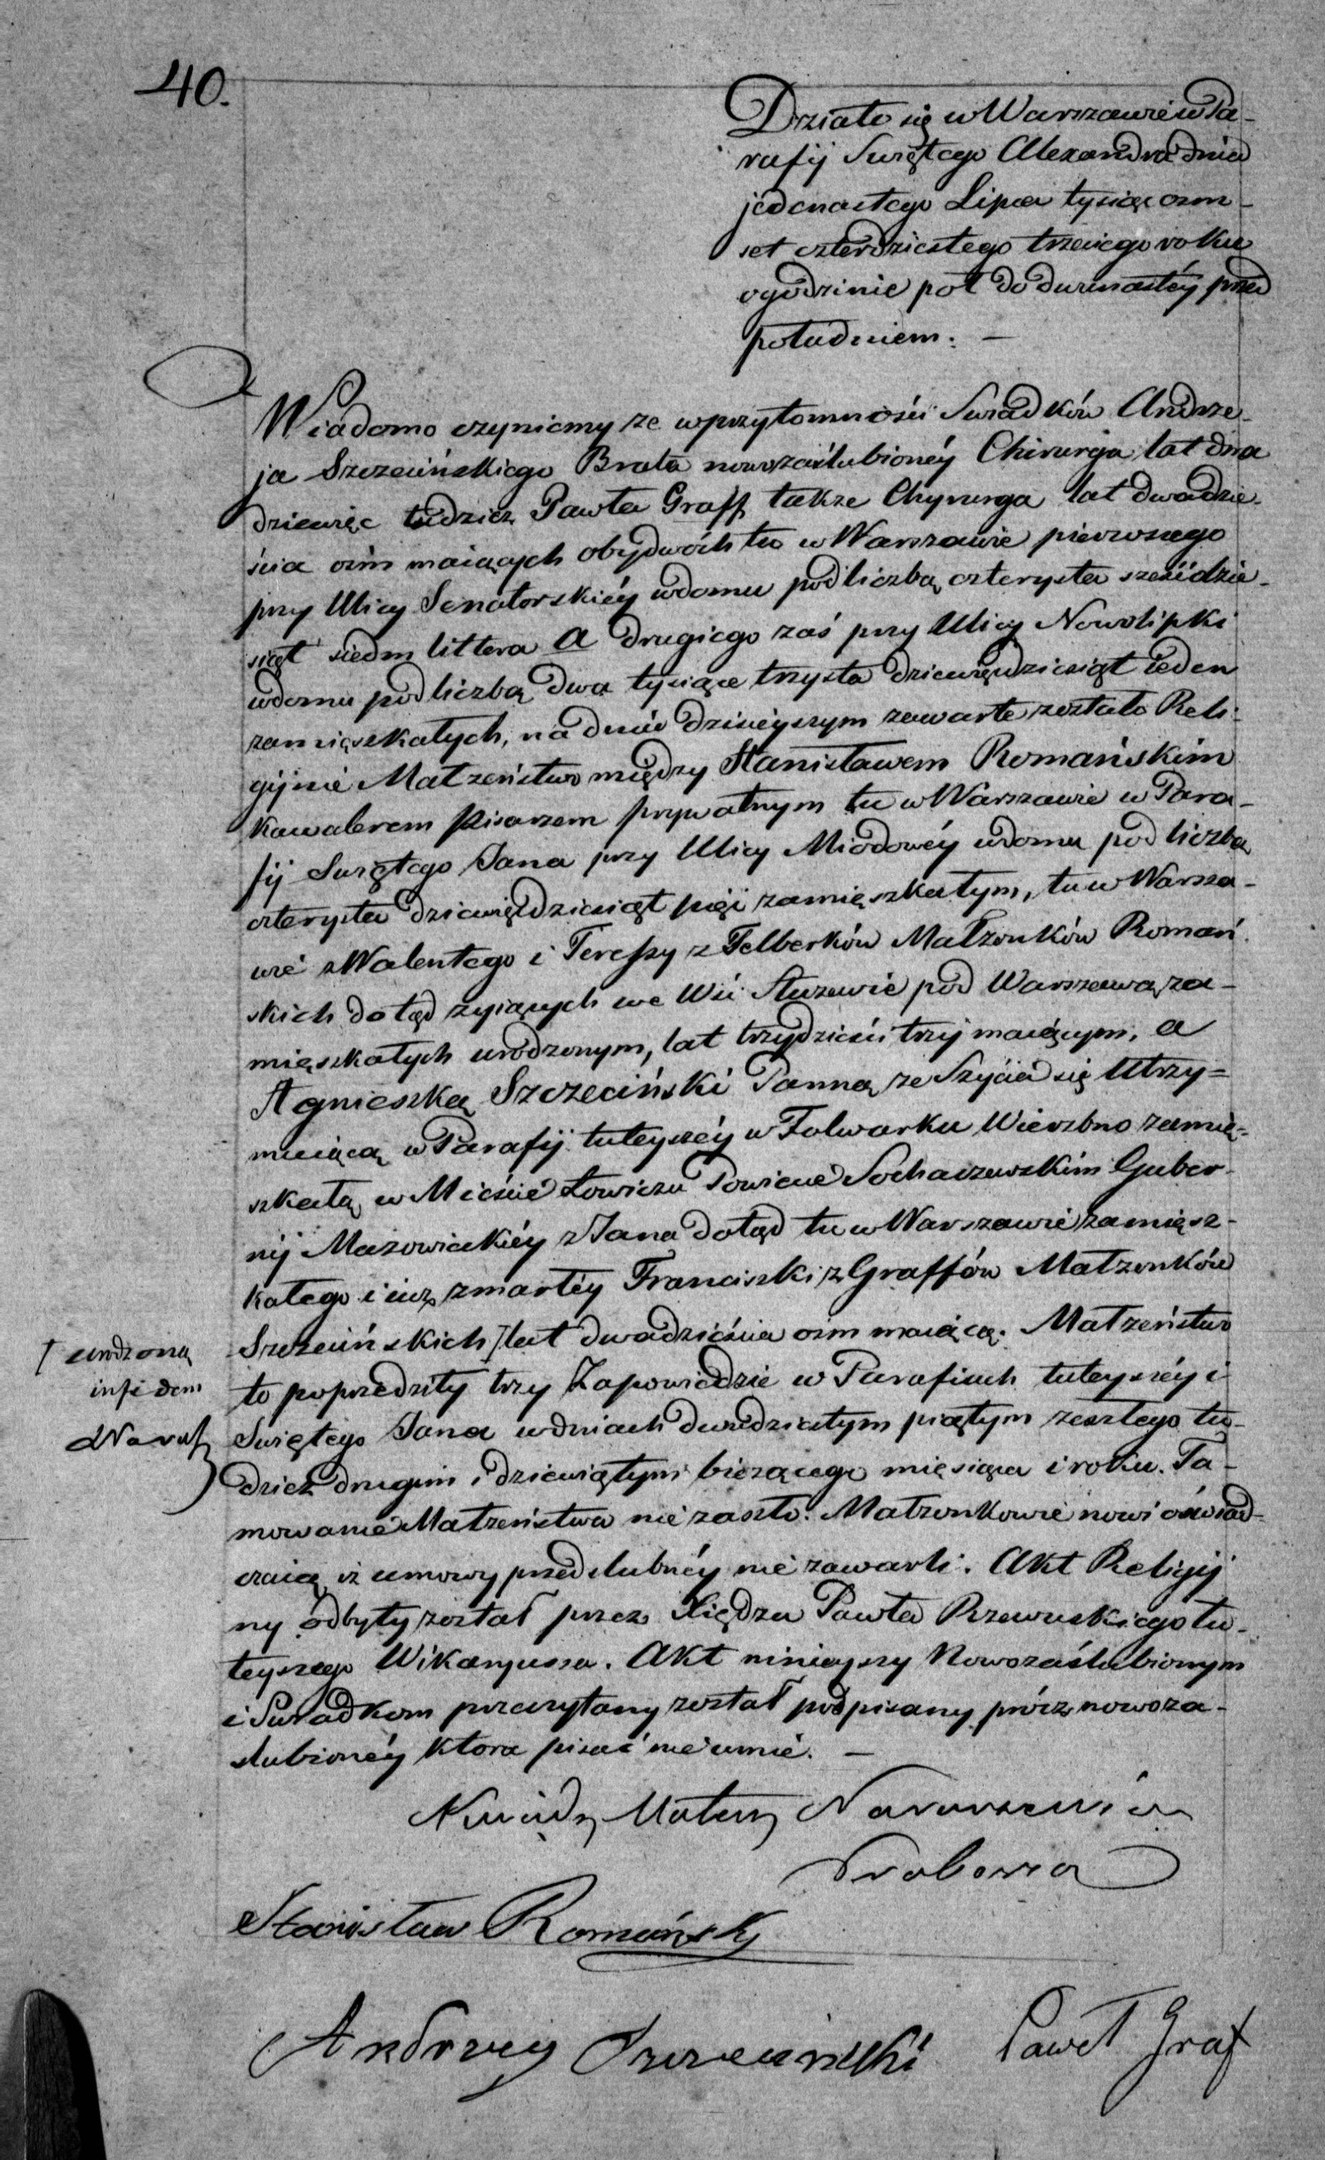 40.
Działo się w Warszawie w Pa-
rafij Swiętego Alexandra dnia
jedenastego Lipca tysiąc osm-
set czterdziestego trzeciego roku
o godzinie pół do dwunastéy przed
południem. —
Wiadomo czyniemy że w przytomności Swiadków Andrze-
ja Szczecińskiego Brata nowozaślubionéy Chirurga lat dwa
dzieścia tudzież Pawła Graff także Chyrurga lat dwadzie-
ścia ośm maiących obydwóch tu w Warszawie pierwszego
przy Ulicy Senatorskiéy w domu pod liczbą czterysta sześćdzie-
siąt siedm littera A drugiego zaś przy Ulicy Nowolipki
w domu pod liczbą dwa tysiące trzysta dziewięćdziesiąt ieden
zamięszkałych, na dniu dzisieyszym zawarte zostało Reli-
gijnie Małżeństwo między Stanisławem Romańskim
Kawalerem Pisarzem prywatnym tu w Warszawie w Para-
fij Swiętego Jana przy Ulicy Miodowéy w domu pod liczbą
czterysta dziewięćdziesiąt pięć zamięszkałym, tu w Warsza-
wie z Walentego i Teressy z Felberków Małżonków Romań
skich dotąd żyiących we Wsi Służewie pod Warszawą za-
mięszkałych urodzonym, lat trzydzieści trzy maiącym, a
Agnieszką Szczeciński Panną ze Szycia się Utrzy=
muiącą w Parafij tuteyszéy w Folwarku Wierzbno zamię-
szkałą w Mieście Łowiczu Powiecie Sochaczewskim Guber-
nij Mazowieckiéy z Jana dotąd tu w Warszawie zamięsz-
kałego i iuż zmarłéy Franciszki z Graffów Małżonków
Szczecińskich lat dwadzieścia ośm maiącą. Małżeństwo
urodzoną
to poprzedziły trzy Zapowiedzie w Parafiach tuteyszéy i
Swiętego Jana w dniach dwudziestym piątym zeszłego tu-
dzież drugim i dziewiątym bieżącego miesiąca i roku. Ta-
mowanie Małżeństwa nie zaszło. Małżonkowie nowi oświad-
czaią iż umowy przedslubnéy nie zawarli. Akt Religij
ny odbyty został przez Xiędza Pawła Rzewuskiego tu-
teyszego Wikaryusza. Akt niniejszy Nowozaślubionym
i Swiadkom przeczytany został podpisany prócz nowoza-
slubionéy która pisać nie umie. —
Stanisław Romański
Andrzey Szczeciński Paweł Graf